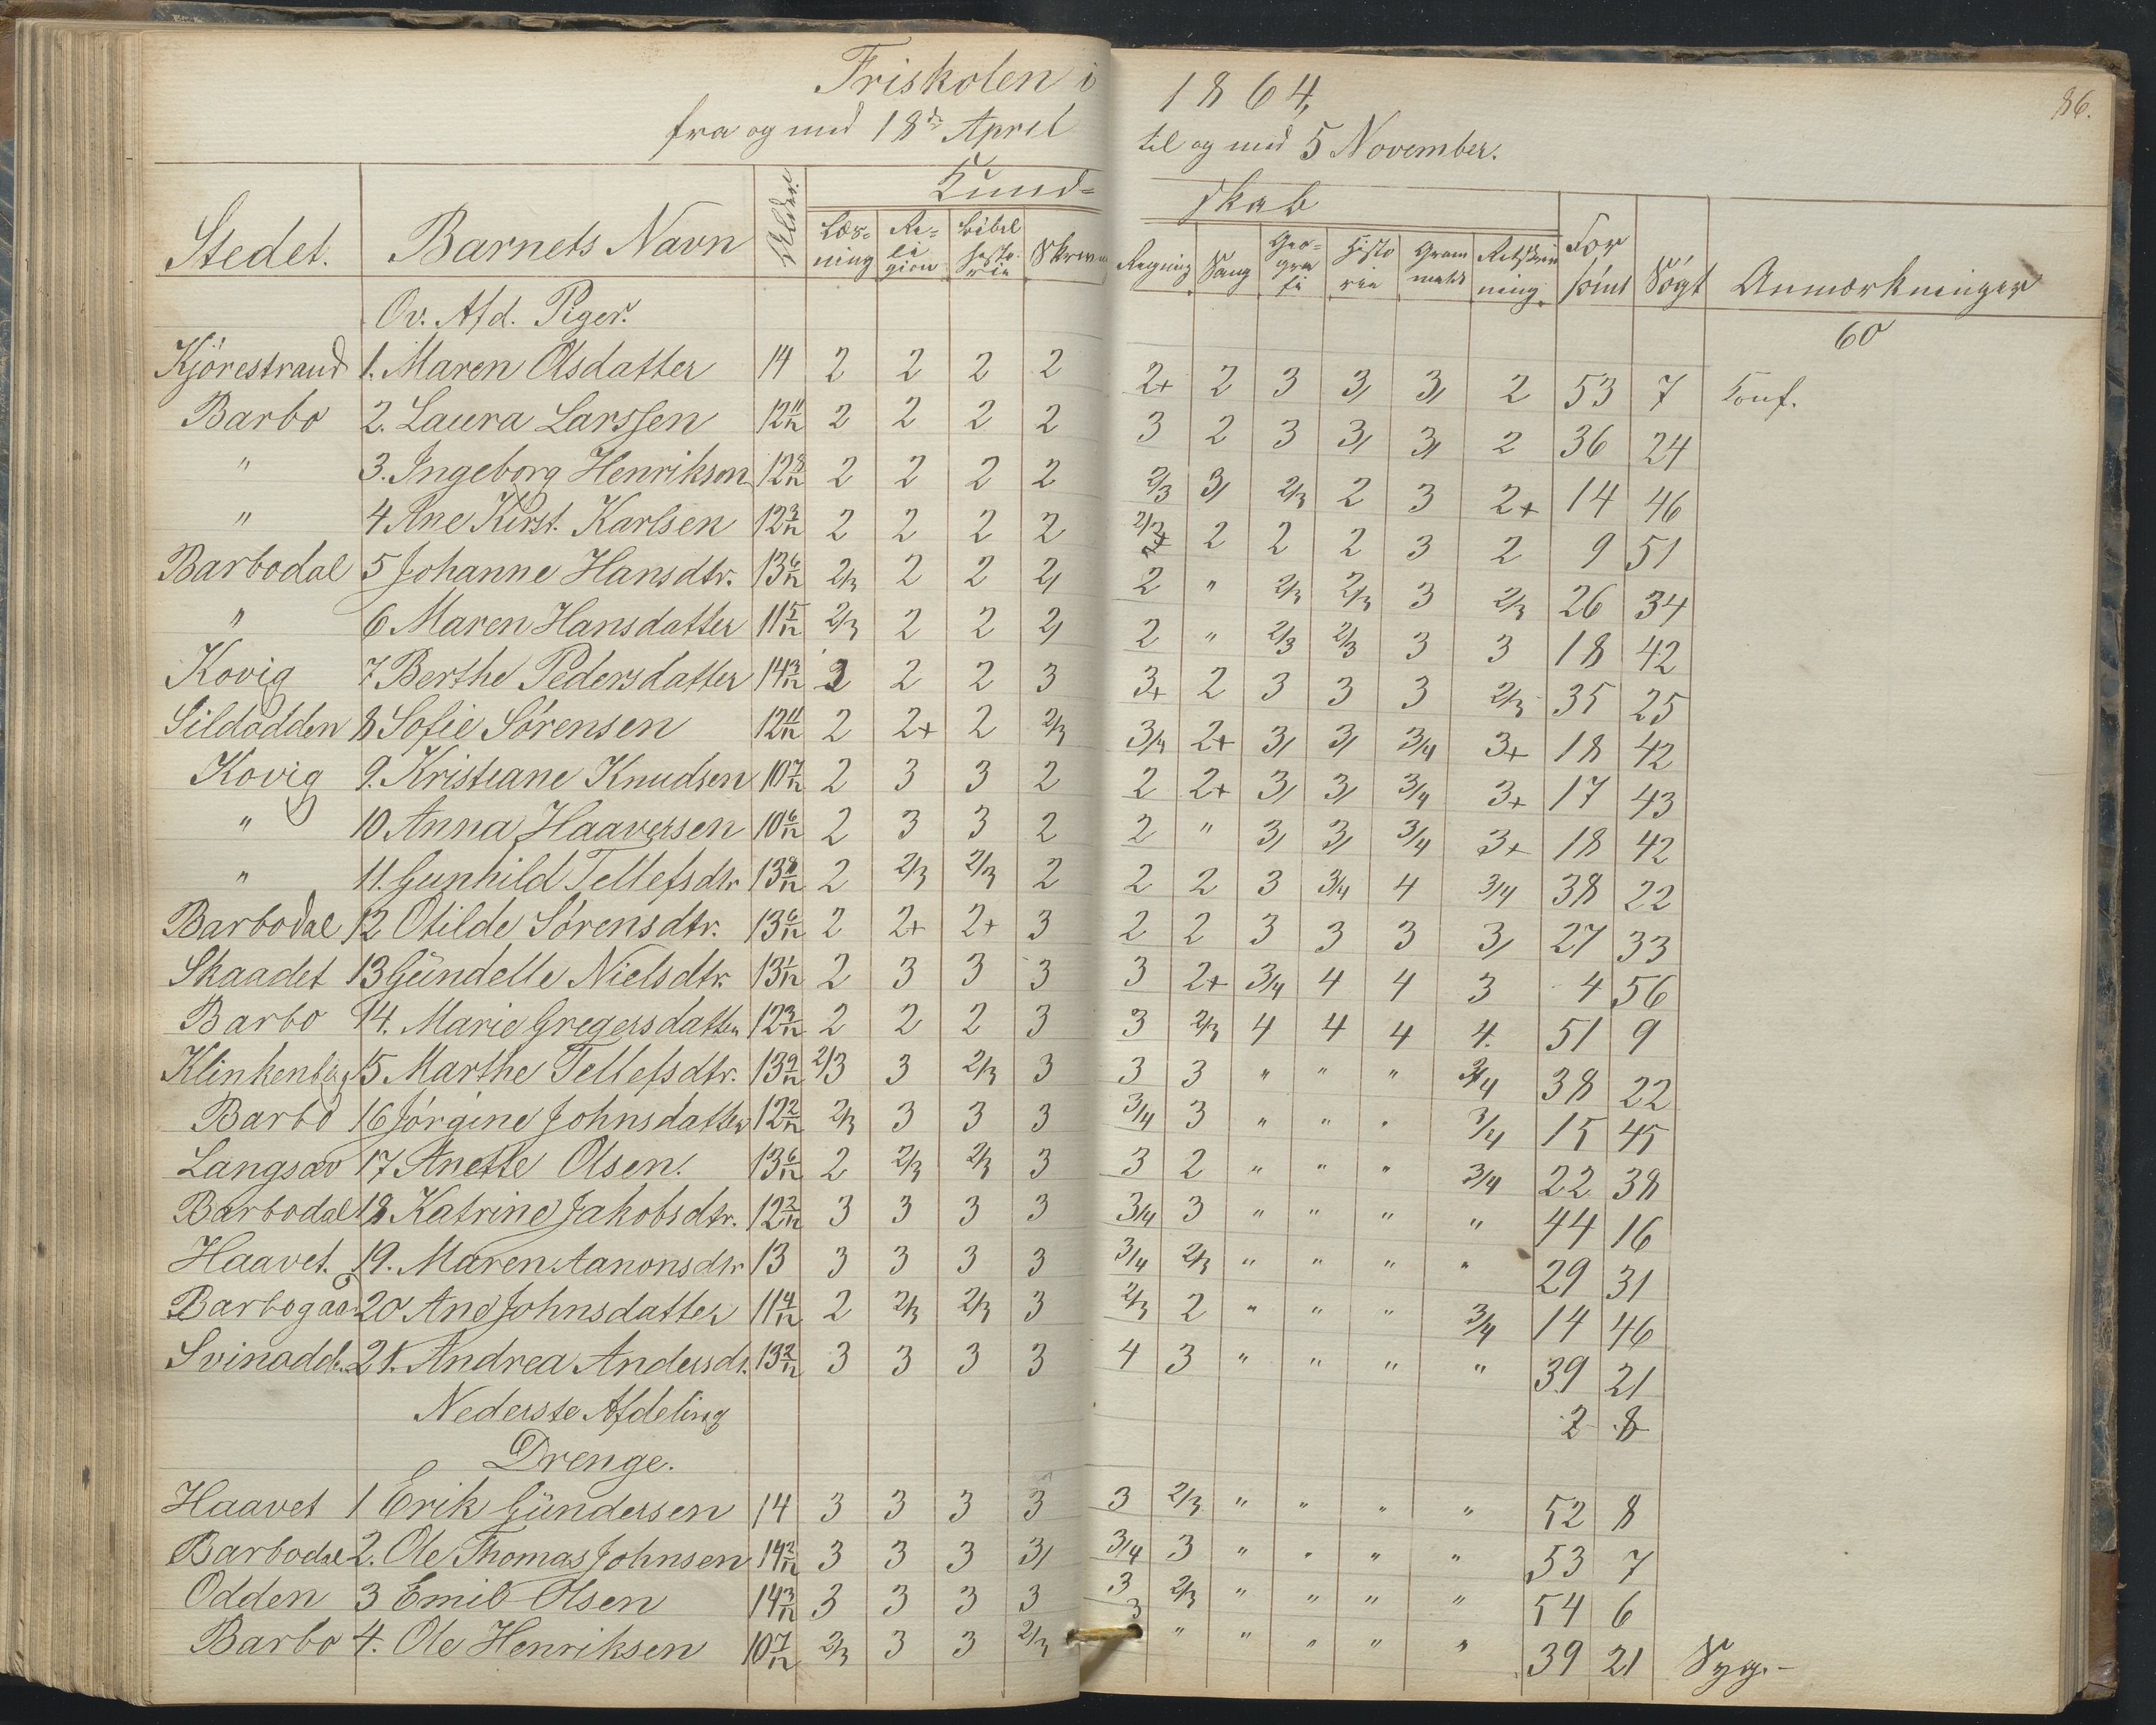 Friskolen i 1864,
86.
fra og med 18de April til og med 5 November.
Stedet. Barnets Navn Alder. Kund- skab Forsömt Sögt Anmærkninger
Læs-ning Re-li-gion Bibel histo-rie Skrivn Regning Sang Geo-gra-fi Histo rie Gram matik Retskriv ning.
Ov. Afd. Piger. 60
Kjörestrand 1. Maren Olsdatter 14 2 2 2 2 2+ 2 3 3/ 3/ 2 53 7 Konf.
Barbo 2. Laura Larssen 12 11/12 2 2 2 2 3 2 3 3/ 3/ 2 36 24
" 3. Ingeborg Henrikson 12 8/12 2 2 2 2 2/3 3/ 2/3 2 3 2+ 14 46
" 4 Ane Kirst. Karlsen 12 3/12 2 2 2 2 2/3 2 2 2 3 2 9 51
Barbodal 5 Johanne Hansdtr. 13 6/12 2/3 2 2 2/ 2 " 2/3 2/3 3 2/3 26 34
" 6 Maren Hansdatter 11 5/12 2/3 2 2 2/ 2 " 2/3 2/3 3 3 18 42
Kovig 7 Berthe Pedersdatter 14 3/12 2 2 2 3 3+ 2 3 3 3 2/3 35 25
Sildodden 8 Sofie Sörensen 12 11/12 2 2+ 2 2/3 3/4 2+ 3/ 3/ 3/4 3+ 18 42
Kovig 9. Kristiane Knudsen 10 7/12 2 3 3 2 2 2+ 3/ 3/ 3/4 3+ 17 43
" 10 Anna Haaversen 10 6/12 2 3 3 2 2 " 3/ 3/ 3/4 3+ 18 42
" 11. Gunhild Tellefsdtr 13 8/12 2 2/3 2/3 2 2 2 3 3/4 4 3/4 38 22
Barbodal 12 Otilde Sörensdtr. 13 6/12 2 2+ 2+ 3 2 2 3 3 3 3/ 27 33
Skaadet 13 Gündelle Nielsdtr. 13 1/12 2 3 3 3 3 2+ 3/4 4 4 3 4 56
Barbo 14. Marie Gregersdatter 12 3/12 2 2 2 3 3 2/3 4 4 4 4. 51 9
Klinkenberg 15 Marthe Tellefsdtr. 13 9/12 2/3 3 2/3 3 3 3 " " " 3/4 38 22
Barbo 16 Jörgine Johnsdatter 12 2/12 2/3 3 3 3 3/4 3 " " " 3/4 15 45
Langsæv 17 Anette Olsen. 13 6/12 2 2/3 2/3 3 3 2 " " " 3/4 22 38
Barbodal 18 Katrine Jakobsdtr. 12 2/12 3 3 3 3 3/4 3 " " " " 44 16
Haavet. 19. Maren Aanonsdtr 13 3 3 3 3 3/4 2/3 " " " " 29 31
Barbogaar 20 Ane Johnsdatter 11 4/12 2 2/3 2/3 3 2/3 2 " " " 3/4 14 46
Svinodd. 21. Andrea Andersdt. 13 2/12 3 3 3 3 4 3 " " " " 39 21
Nederste Afdeling 2 8
Drenge.
Haavet 1 Erik Gündersen 14 3 3 3 3 3 2/3 " " " " 52 8
Barbodal 2. Ole Thomas Johnsen 14 2/12 3 3 3 3/ 3/4 3 " " " " 53 7
Odden 3 Emil Olsen 14 3/12 3 3 3 3 3 2/3 " " " " 54 6
Barbo 4. Ole Henriksen 10 7/12 2/3 3 3 2/3 3 " " " " " 39 21 Syg. -